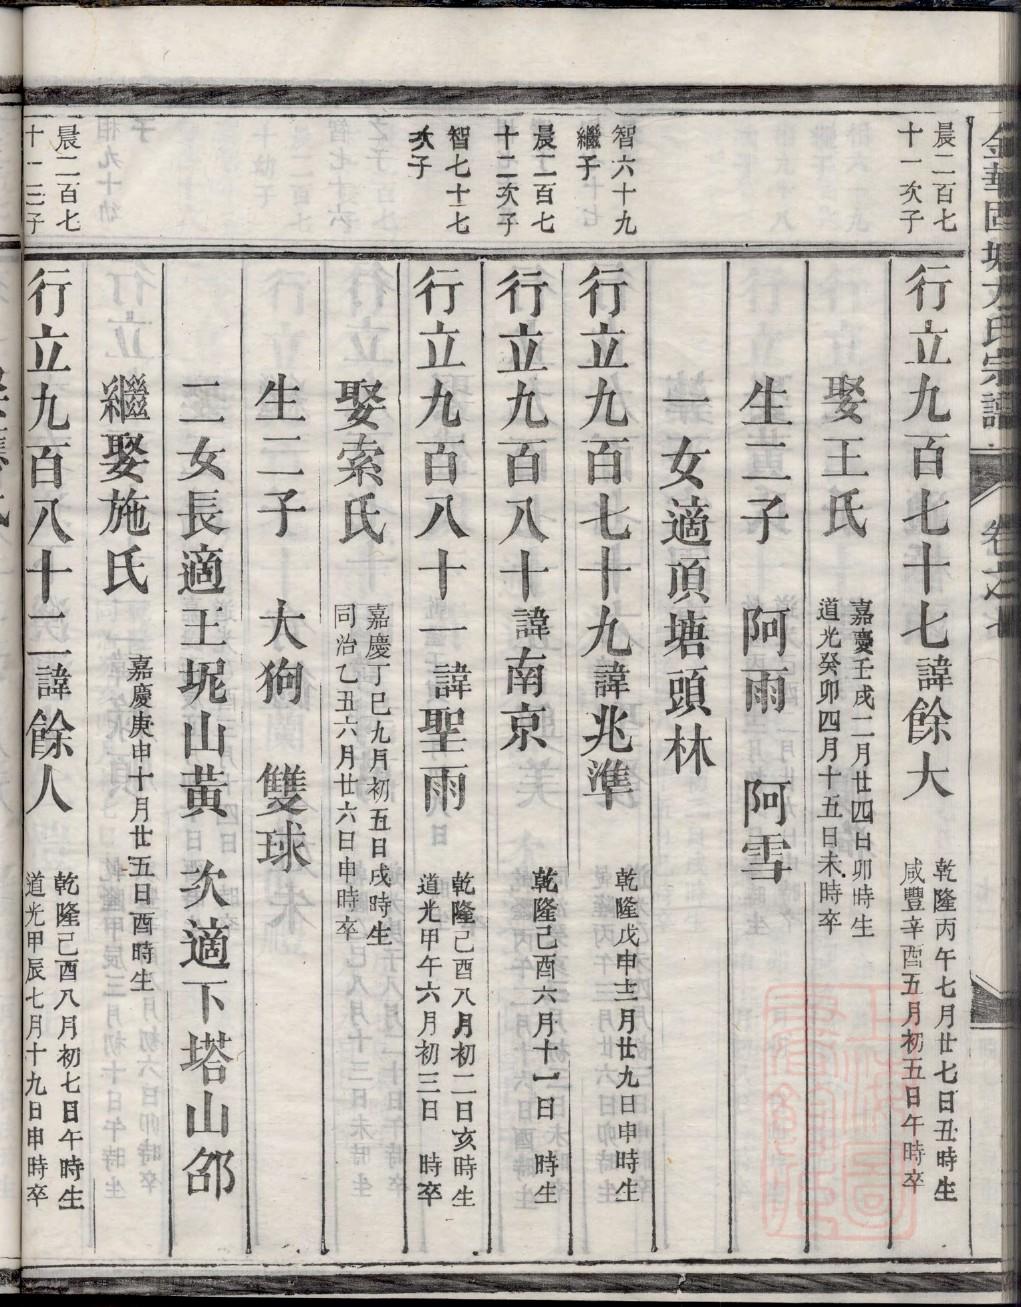 金華固塘方氏宗譜
卷之
晨二百七
十一次子
行立九百七十七諱餘大
乾隆丙午七月廿七日丑時生
咸豐辛酉五月初五日午時卒
娶王氏
嘉慶壬戌二月廿四日卯時生
道光癸卯四月十五日未時卒
生二子 阿雨 阿雪
一女適頂塘頭林
智六十九
繼子
行立九百七十九諱兆準
乾隆戊申十二月廿九日申時生
晨二百七
十二次子
行立九百八十諱南京
乾隆己酉六月十一日 時生
智七十七
次子
行立九百八十一諱聖雨
乾隆己酉八月初二日亥時生
道光甲午六月初三日 時卒
娶索氏
嘉慶丁巳九月初五日戌時生
同治乙丑六月廿六日申時卒
生二子 大狗 雙球
二女長適王坭山黃 次適下塔山邵
繼娶施氏
嘉慶庚申十月廿五日酉時生
晨二百七
十一三子
行立九百八十二諱餘人
乾隆己酉八月初七日午時生
道光甲辰七月十九日申時卒